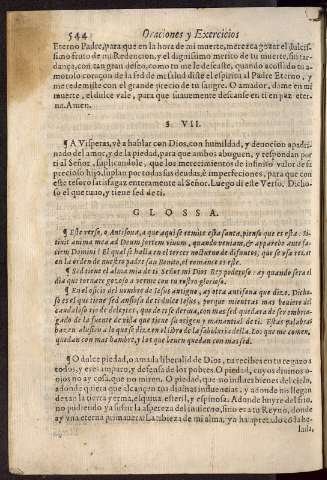 544 Oraciones y Exercicios
Eterno Padre, para que en la hora de mi muerte, merezca gozar el dulcis-
simo fruto de mi Redencion, y el dignissimo merito de tu muerte, sin tar-
dança, con tan gran deseo, como tu me le deseaste, quando acosado tu a-
moroso coraçon de la sed de mi salud diste el espiritu al Padre Eterno, y
me redemiste con el grande precio de tu sangre. O amador, dame en mi
muerte, el dulce vale, para que suavemente descanse en ti en paz eter-
na. Amen.
§. VII.
¶ A Visperas, vè a hablar con Dios, con humildad, y devocion apadri-
nado del amor, y de la piedad, para que ambos aboguen, y respondan por
ti al Señor, suplicandole, que los merecimientos de infinito valor de su
precioso hijo, suplan por todas sus deudas, è imperfeciones, para que con
este tesoro satisfagas enteramente al Señor. Luego di este Verso, Dicho-
so el que tuvo, y tiene sed de ti.
GLOSSA.
¶ Este verso, o Antifona, a que aqui se remite esta santa, pienso que es esta. Si-
tivit anima mea ad Deum fortem vivum, quando veniam, & apparebo ante fa-
ciem Domini? El qual se halla en el tercer nocturno de difuntos, que se usa rezar
en la orden de nuestro padre san Benito, el romance es este.
¶ Sed tiene el alma mia de ti Señor mi Dios Rey poderoso: ay quando sera el
dia que tornare gozoso a verme con tu rostro glorioso.
¶ En el oficio del nombre de Jesus antiguo, ay otra antifona que dize. Dicho-
so es el que tiene sed ansiosa de ti dulce Jesus, porque mientras mas beviere del
caudaloso rio de deleytes, que de ti se deriva, con mas sed quedara de ser embria-
gado de la fuente de vida que tiene su origen y manantial de ti. Estas palabras
hazen alusion a lo que se dize en el libro de la sabiduria della. Los que me comen,
quedan con mas hambre, y los que beven quedan con mas sed.
¶ O dulce piedad, o amada liberalidad de Dios, tu recibes en tu regazo a
todos, y eres amparo, y defensa de los pobres. O piedad, cuyos divinos o-
jos no ay cosa, que no miren. O piedad,
adonde quiera que alcançan tus divinas influencias: y adonde no llegan
dexan la tierra yerma, elquiua, esteril, y espinosa. Adonde huyre del frio,
no pudiendo ya sufrir la aspereza del invierno, sino es a tu Reyno, donde
ay una eterna primavera?